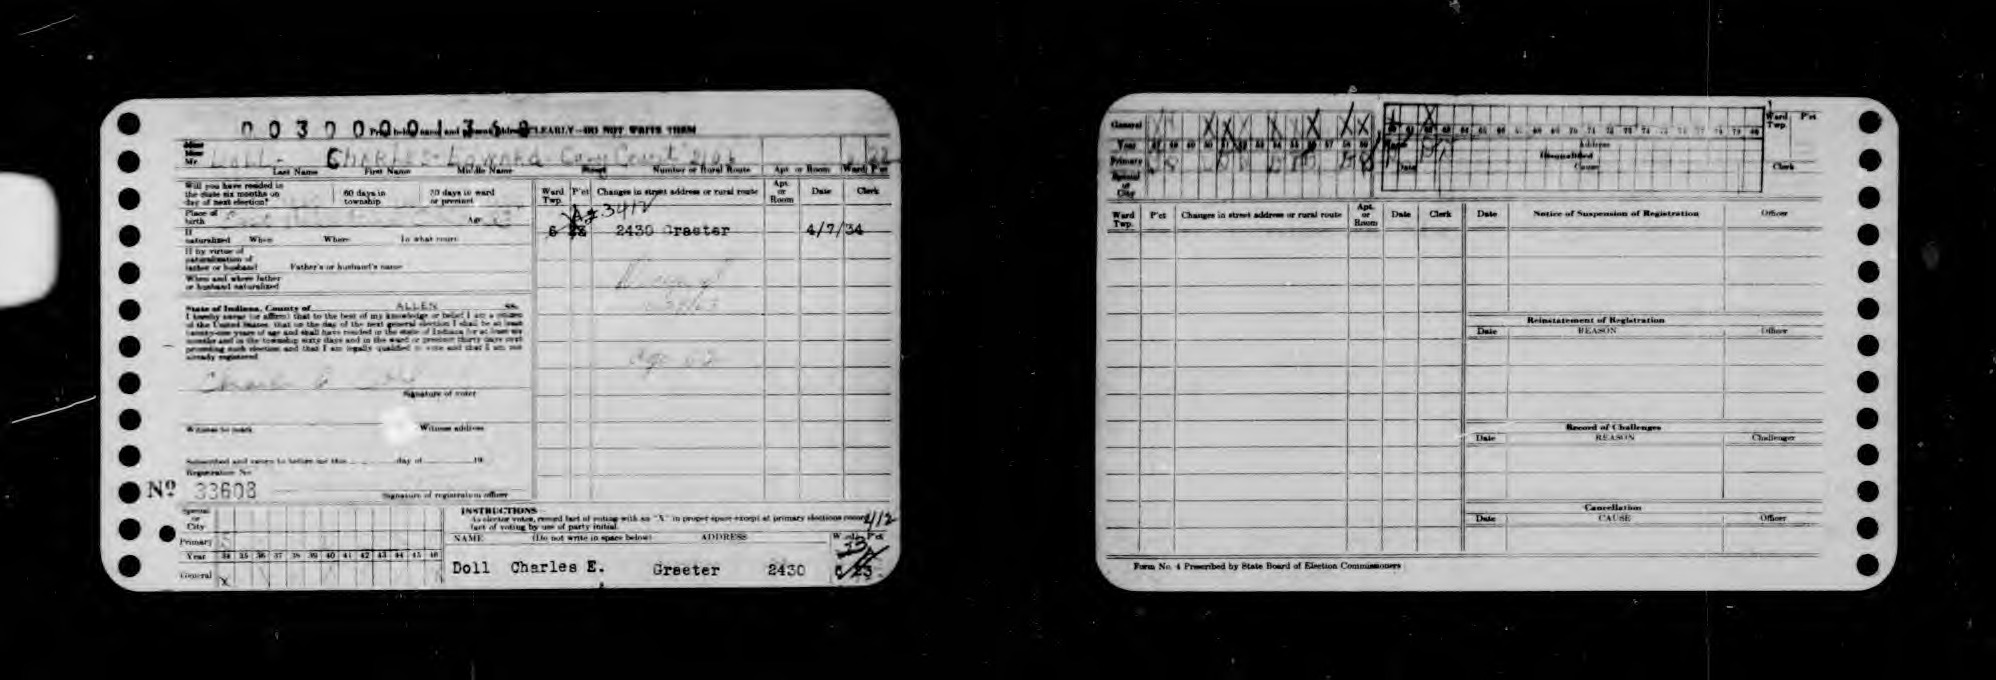 0 0 3 0 0 0 0 1 3 6 0
CLEARLY—DO NOT WRITE THEM
Miss
Mrs.
Mr. DOLL - CHARLES - EDWARD Court 22
Last Name First Name Middle Name Street Number or Rural Route Apt. or Room Ward P'ct
Will you have resided in
the state six months on
day of next election? 60 days in
township 30 days in ward
or precinct
Ward
Twp. P'ct Changes in street address or rural route Apt.
or
Room Date Clerk
Place of
birth Age
A #3412
If
naturalized When Where In what court
6 23 2430 Graeter 4/7/34
If by virtue of
naturalization of
father or husband Father's or husband's name
When and where father
or husband naturalized
State of Indiana, County of ALLEN ss.
I hereby swear (or affirm) that to the best of my knowledge or belief I am a citizen
of the United States, that on the day of the next general election I shall be at least
twenty-one years of age and shall have resided in the state of Indiana for at least six
months and in the township sixty days and in the ward or precinct thirty days next
preceding such election and that I am legally qualified to vote and that I am not
already registered
Charles E Doll
Signature of voter
Witness to mark Witness address
Subscribed and sworn to before me this day of 19
Registration No.
Nº 33603
Signature of registration officer
Special
or
City
Primary
Year 34 35 36 37 38 39 40 41 42 43 44 45 46
General X
INSTRUCTIONS
As elector votes, record fact of voting with an "X" in proper space except at primary elections record
fact of voting by use of party initial.
412
NAME (Do not write in space below) ADDRESS Ward P'ct
Doll Charles E. Graeter 2430 6 23
General X X X X X X X
Year 47 48 49 50 51 52 53 54 55 56 57 58 59
Primary
Special
or
City
60 61 62 63 64 65 66 67 68 69 70 71 72 73 74 75 76 77 78 79 80
Name Address
Disqualified
Date Cause
Ward
Twp. P'ct
Clerk
Ward
Twp. P'ct Changes in street address or rural route Apt.
or
Room Date Clerk
Date Notice of Suspension of Registration Officer
Reinstatement of Registration
Date REASON Officer
Record of Challenges
Date REASON Challenger
Cancellation
Date CAUSE Officer
Form No. 4 Prescribed by State Board of Election Commissioners